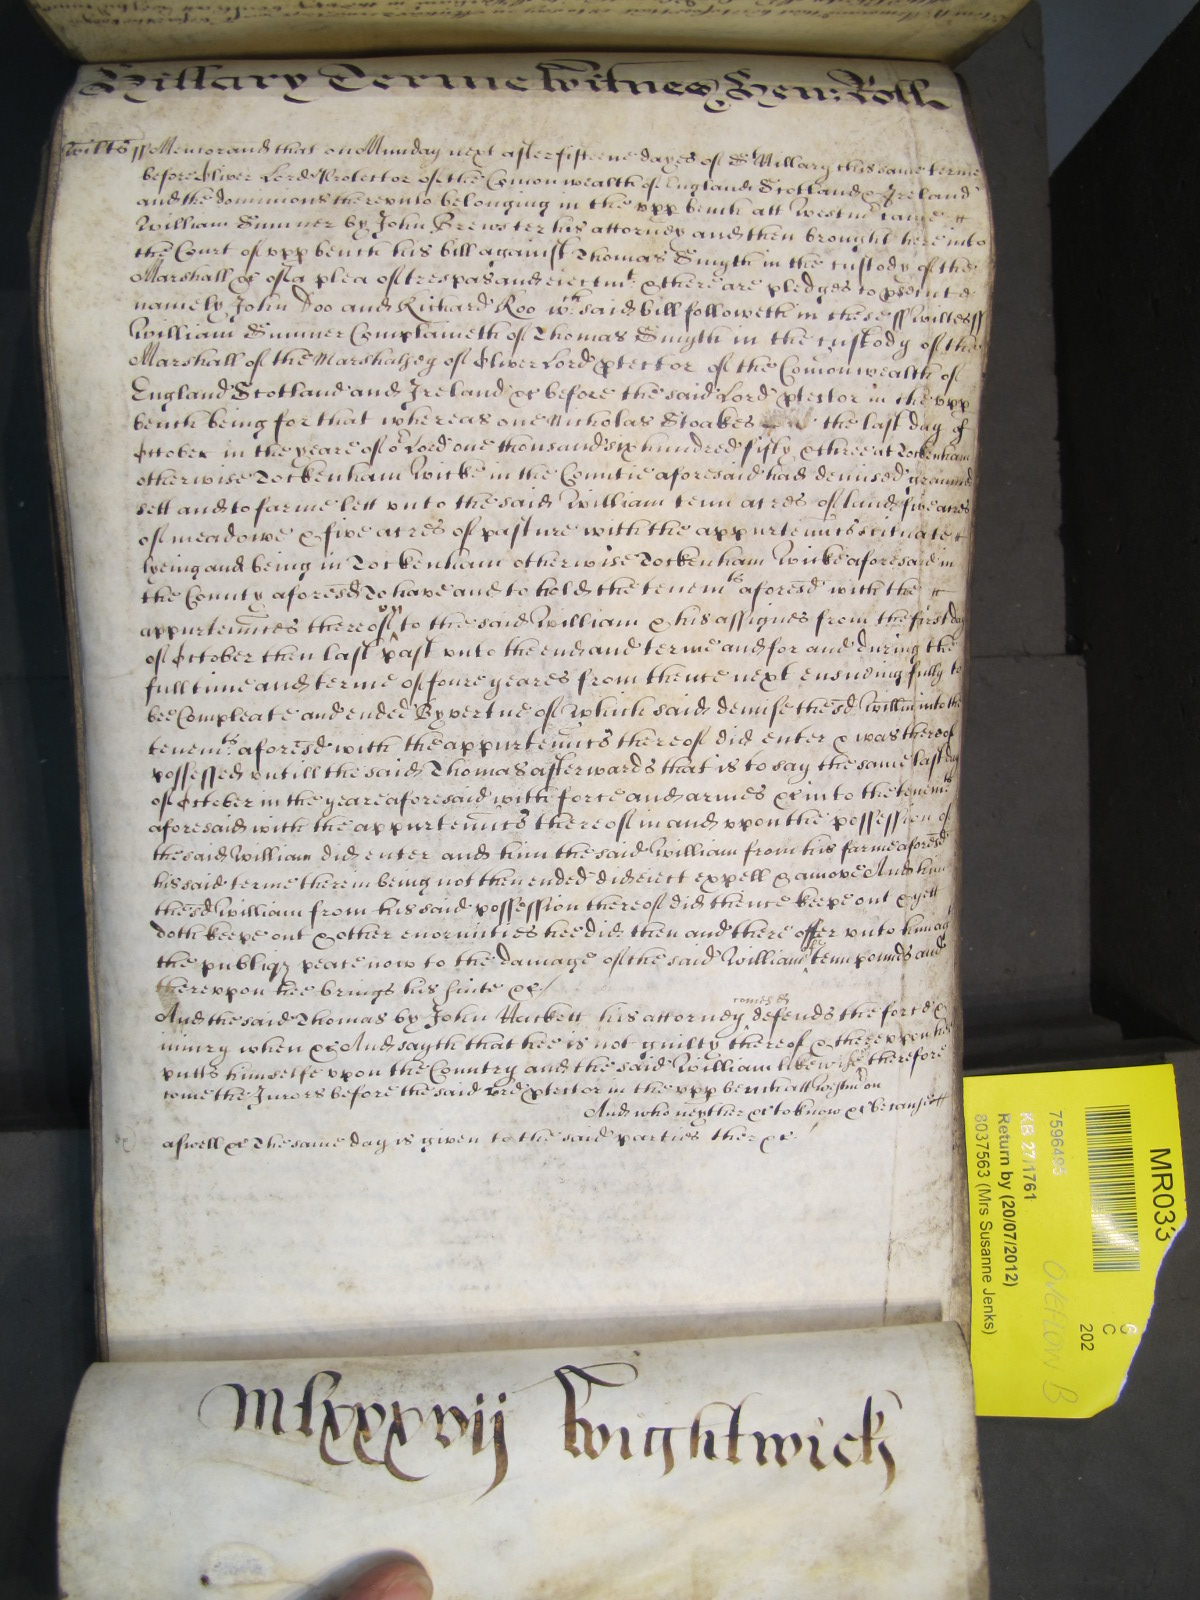 Hillary Terme Witnes Hen: Rolle
Wilts ss Memorand that on Munday next after fifteene dayes of St Hillary this same terme
before Oliver Lord Protector of the Comon wealth of England Scotland & Ireland
and the dominions thereunto belonging in the upp bench att Westmr came
William Sumner by John Brewster his attorney and then brought here into
the Court of upp bench his bill against Thomas Smyth in the custody of the
Marshall &c of a plea of trespas and eiectmt & there are pledges to psecute
namely John Doo and Richard Roo wch said bill followeth in these ss Wiltes ss
William Sumner Complaineth of Thomas Smyth in the custody of the
Marshall of the Marshalsey of Oliver Lord ptector of the Comonwealth of
England Scotland and Ireland &c before the said Lord ptector in the upp
bench being for that whereas one Nicholas Stoakes the last day of
October in the yeare of or Lord one thousand six hundred fifty & three at Tockenham
otherwise Tockenham Wicke in the Countie aforesaid had demised graunted
sett and to farme lett unto the said William tenn acres of land five acres
of meadowe & five acres of pasture with the appurtenncs scituate
lyeing and being in Tockenham otherwise Tockenham Wicke aforesaid in
the County aforesd To have and to hold the tenemts aforesd with the
appurtennces thereof to the said William & his assignes from the first day
of October then last past unto the end and terme and for and during the
full time and terme of foure yeares from thence next ensuding fully to
bee Compleate and ended By vertue of which said demise the sd Willm into the
tenemts aforesd with the appurtenncs thereof did enter & was thereof
possessed untill the said Thomas afterwards that is to say the same last day
of October in the yeare aforesaid with force and armes &c into the tenemts
aforesaid with the appurtenncs thereof in and uppon the possession of
the said William did enter and him the said William from his farme aforesd
his said terme therein being not then ended did eiect expell & amove And him
the sd William from his said possession thereof did thence keepe out & yett
doth keepe out & other enormities hee did then and there offer unto him agt
the publiq peace now to the damage of the said William of tenn pounds and
thereuppon hee brings his suite &c
And the said Thomas by John Hackett his attorney comes & defends the force &
iniury when &c And sayth that hee is not guilty thereof & thereuppon hee
putts himselfe upon the Country and the said William likewise therefore
come the Jurors before the said lord ptector in the upp bench att Westmr on
And who neyther &c to know &c because
aswell &c The same day is given to the said parties ther &c
Mlxxxvij Wightwick
MR033
7596495
KB 27/1761
Return by (20/07/2012)
8037563 (Mrs Susanne Jenks)
C
202
OVERFLOW B